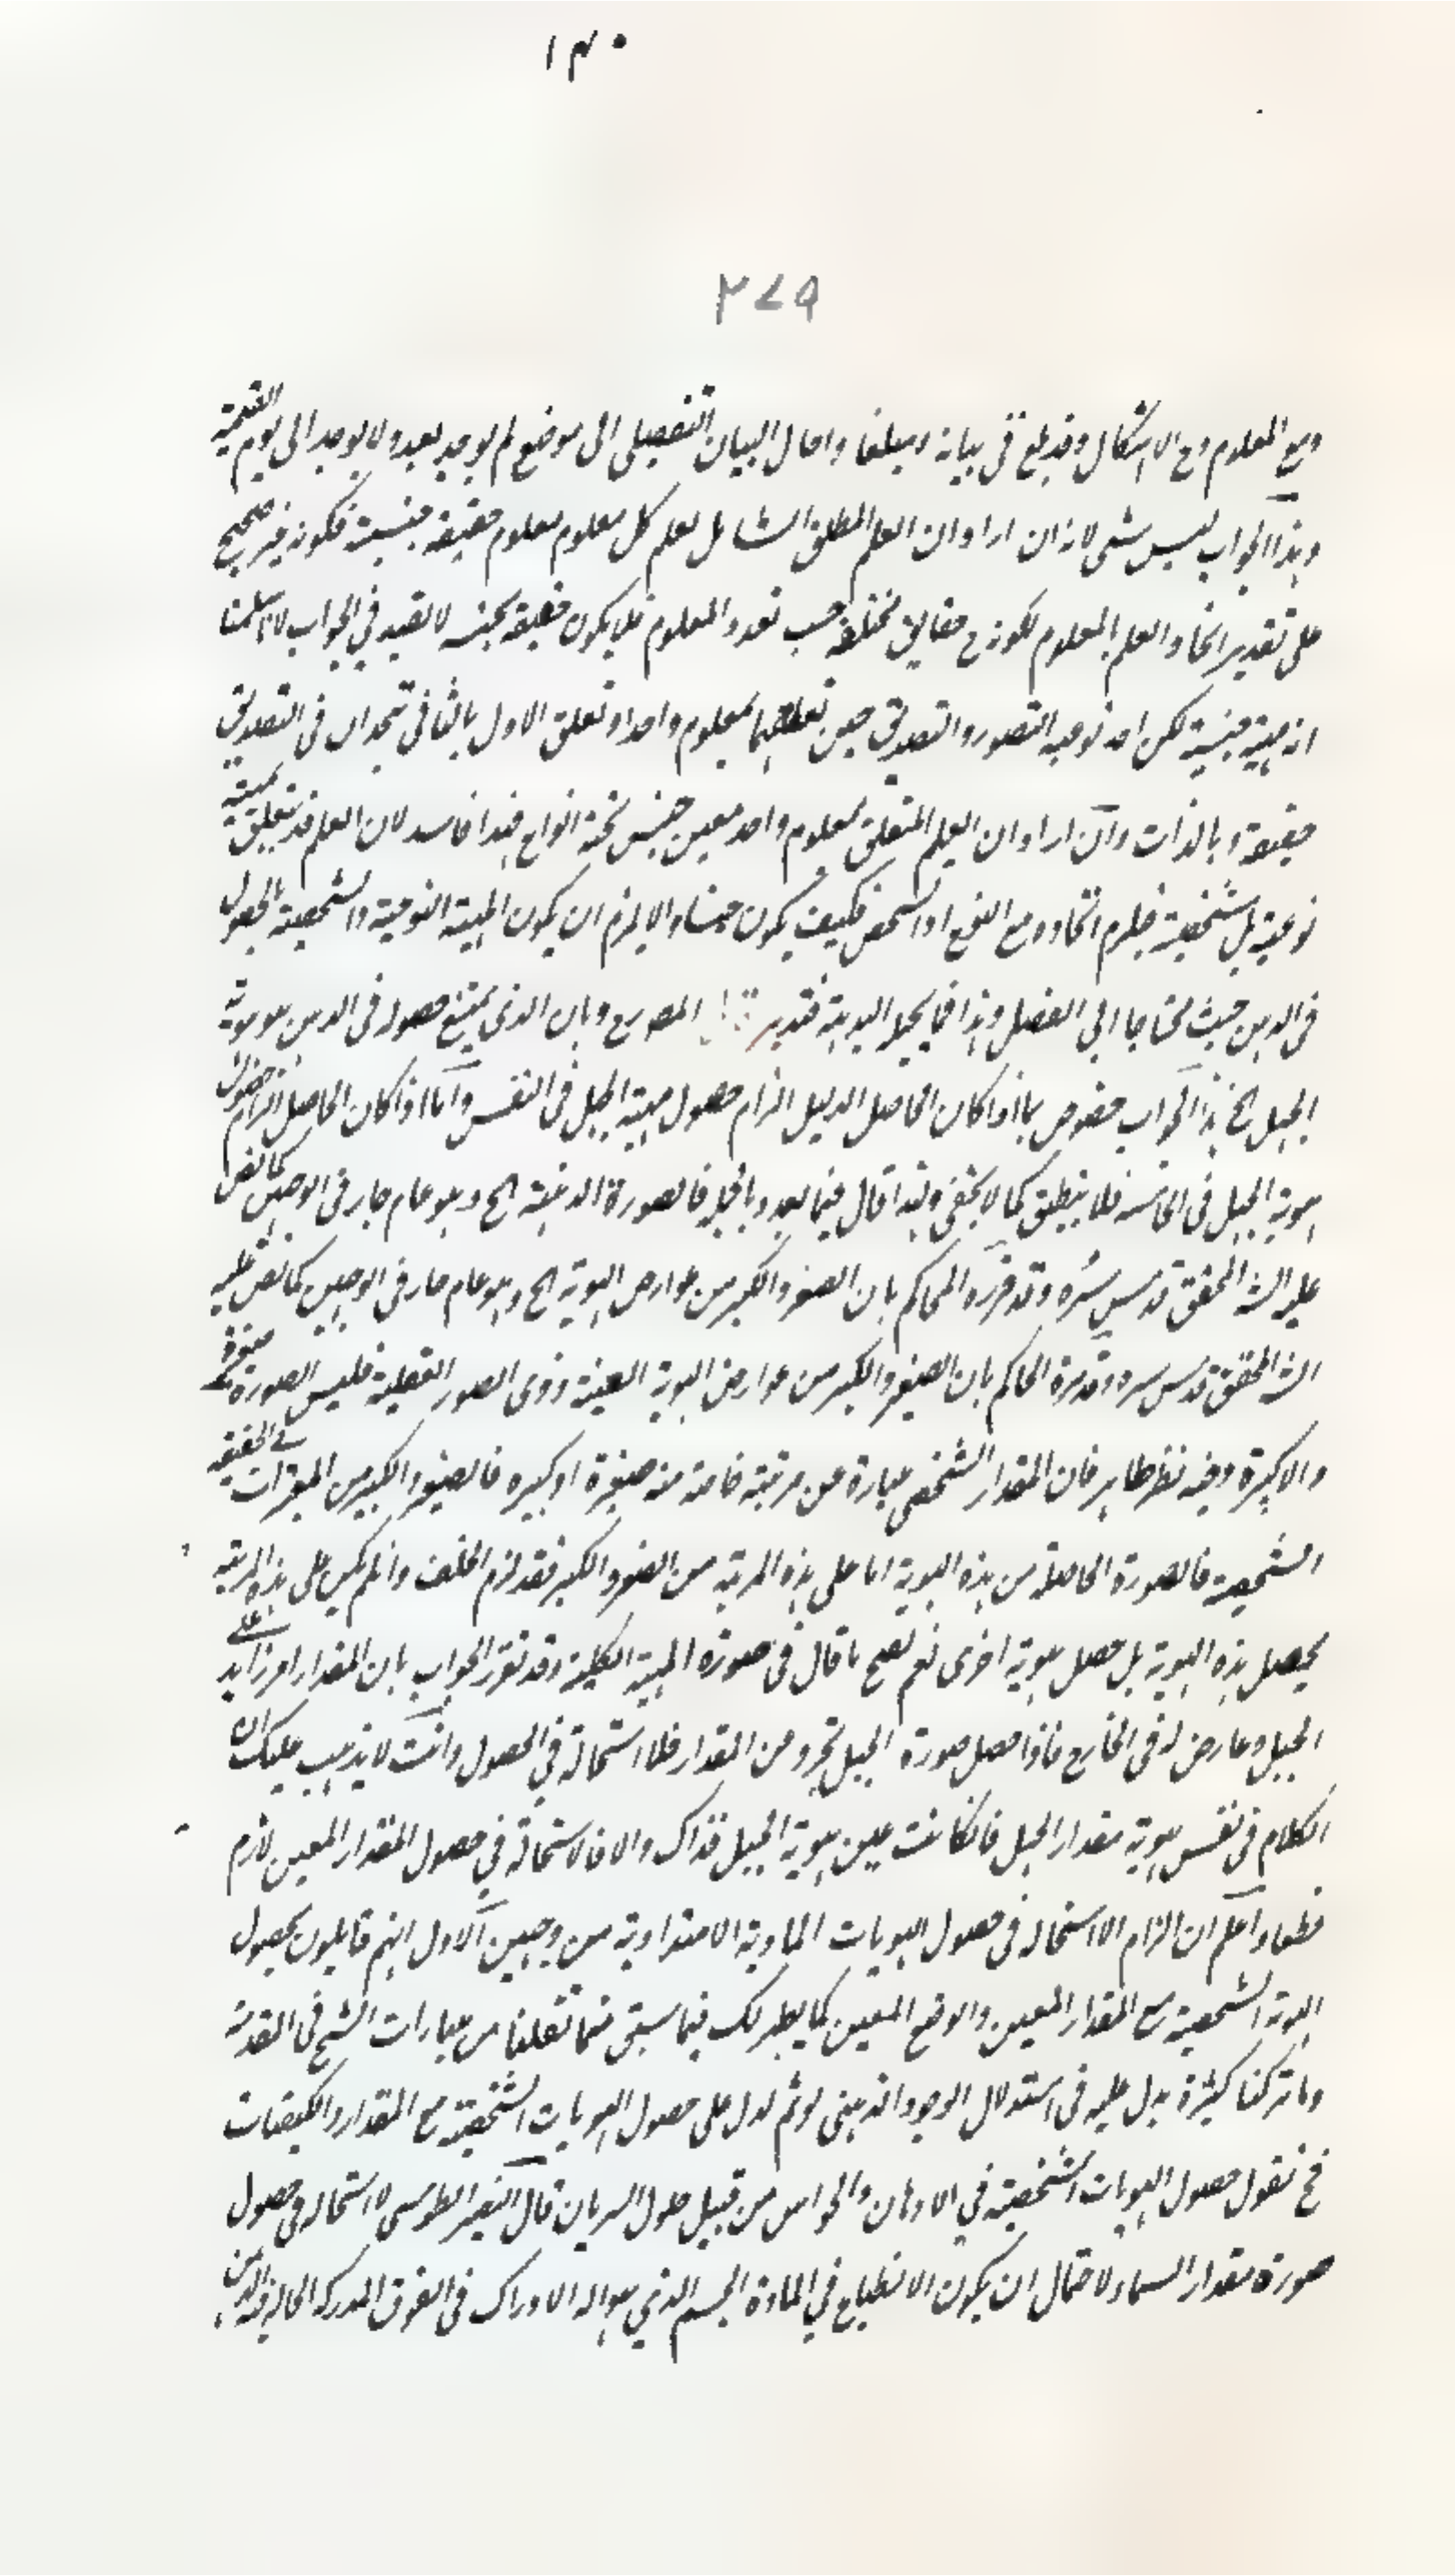 ١٣٠
٢٧٩
ومع المعلوم وح الاشكال وقد بلغ في بيانه مبلغا واحال البيان التفصيلى الى موضع لم يوجد بعد ولا يوجد الى يوم القيمة
وهذا الجواب ليس بشى لانه ان اراد ان العلم المطلق الشامل لعلم كل معلوم معلوم حقيقة جنسية فكونه غير صحيح
على تقدير اتحاد العلم بالمعلوم لكونه ح حقايق مختلفة حسب تعدد المعلوم فلا يكون حقيقة جنسية لا يفيد في الجواب لانا سلمنا
انه مهية جنسية لكن احد نوعيه التصور والتصديق حين تعلقهما بمعلوم واحد او تعلق الاول بالثانى يتحدان فى التصديق
حقيقة وبالذات وان اراد ان العلم المتعلق بمعلوم واحد معين جنس تحته انواع فهذا فاسد لان العلم قد يتعلق بمهية
نوعية بل شخصية فيلزم اتحاده مع النوع او الشخص فكيف يكون جنسا والا يلزم ان يكون المهية النوعية والشخصية الحصول
فى الذهن حيث محتاجا الى الفصل وهذا مما يحيله البديهة فتدبر المصرع وبان الذى يمتنع حصوله فى الذهن هو هوية
الجبل الخ هذا الجواب مخصوص بما اذا كان الحاصل الدليل الزام حصول مهية الجبل فى النفس واما اذا كان الحاصل الزام حصول
هوية الجبل فى الحاسة فلا ينطبق كما لا يخفى ولذا قال فيما بعد وبالجملة فالصورة الذهنية الخ وهو عام جار فى الوجهين كما نص
عليه الشه المحقق قدس سره وقد قرره المحاكم بان الصغر والكبر من عوارض الهوية الخ وهو عام جار فى الوجهين كما نص عليه
الشه المحقق قدس سره وقد قرره المحاكم بان الصغير والكبير من عوارض الهوية العينية دون الصور العقلية فليس الصورة صغيرة
ولا كبيرة وفيه نظر ظاهر فان المقدار الشخصى عبارة عن مرتبة خاصة منه صغيرة او كبيرة فالصغير والكبير من المميزات في الحقيقة
الشخصية فالصورة الحاصلة من هذه الهوية اما على هذه المرتبة من الصغر والكبر فقد لزم الخلف وان لم يكن على هذه المرتبة
يحصل هذه الهوية بل حصل هوية اخرى نعم تصح ما قال فى صورة المهية الكلية وقد تقرر الجواب بان المقدار امر زايد على
الجبل وعارض له فى الخارج فاذا حصل صورة الجبل تجرد من المقدار فلا استحالة في الحصول وانت لا يذهب عليك ان
الكلام فى نفس هوية مقدار الجبل فان كانت عين هوية الجبل فذاك والا فالاستحالة في حصول المقدار المعين لازم
قطعا واعلم ان الزام الاستحالة فى حصول الهويات المادية الامتدادية من وجهين الاول انهم قايلون بحصول
الهوية الشخصية مع المقدار المعين والوضع المعين كما يظهر لك فيما سبق مما نقلنا من عبارات الشيخ فى المقدمة
وما تركنا كثيرة يدل عليه فى استدلال الوجود الذهنى لو تم لدل على حصول الهويات الشخصية مع المقدار والكيفيات
فح نقول حصول الهويات الشخصية في الاذهان والحواس من قبيل حلول السريان قال النصير الطوسى لا استحالة فى حصول
صورة مقدار السماء لاحتمال ان يكون الانطباع في المادة الجسم الذي هو اله الادراك فى القوة المدركة الحالة فيه